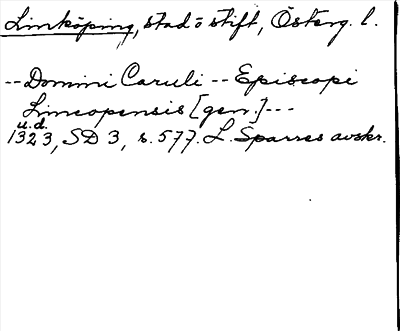 Linköping, stad o stift, Österg. l.
-- Domini Caruli -- Episcopi
Lincopensis [gen.] ---
u.d.
1323, SD 3, s. 577. L. Sparres avskr.